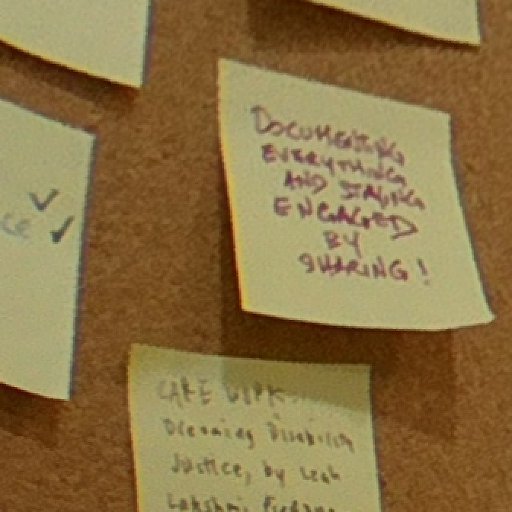 DOCUMENTING
EVERYTHING
AND STAYING
ENGAGED
BY
SHARING!
CE ✓ ✓
CARE WORK
Dreaming Disability
Justice, by Leah
Lakshmi